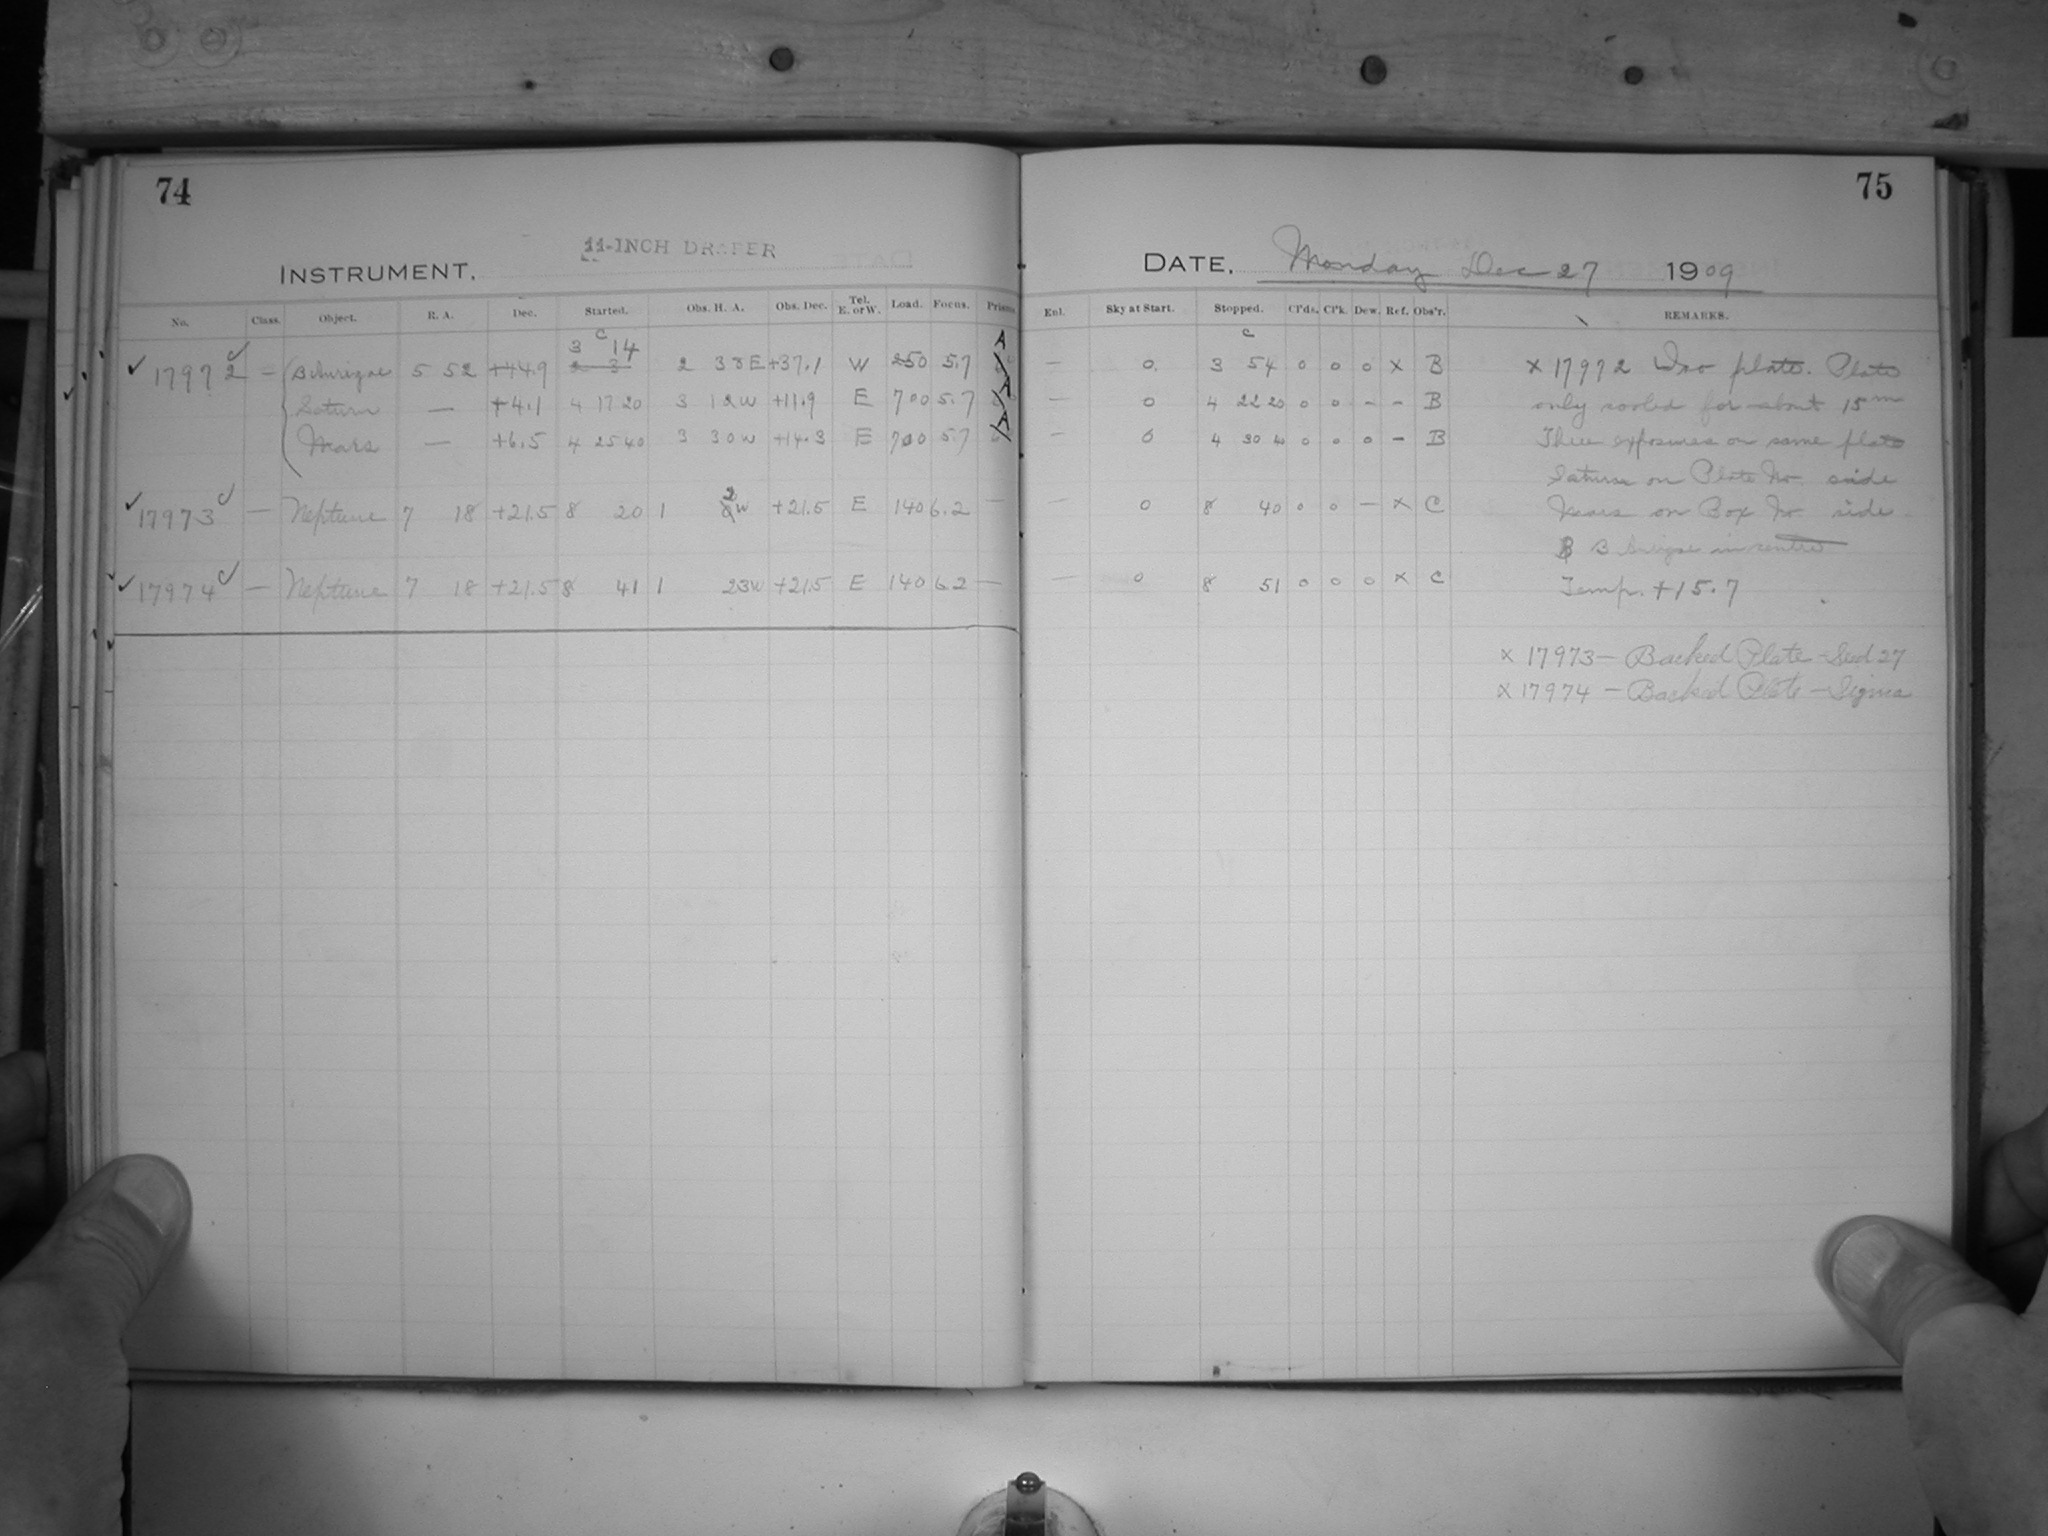 74
11-INCH DRAPER
INSTRUMENT,
No. Class. Object. R. A. Dec. Started. Obs. H. A. Obs. Dec. Tel. E. or W. Load. Focus. Prisms
3 C 14 A
17972 — B Aurigae 5 52 +44.9 2 3 2 38E +37.1 W 250 5.7
Saturn — +4.1 4 17 20 3 12W +11.9 E 700 5.7 A
Mars — +6.5 4 25 40 3 30W +14.3 E 700 5.7 A
17973 — Neptune 7 18 +21.5 8 20 1 2W +21.5 E 140 6.2 —
17974 — Neptune 7 18 +21.5 8 41 1 23W +21.5 E 140 6.2 —
75
DATE, Monday Dec 27 1909
Enl. Sky at Start. Stopped. Cl'ds. Cl'k. Dew. Ref. Obs'r. REMARKS.
C
— 0 3 54 0 0 0 x B x 17972 Iso plate. Plate
— 0 4 22 20 0 0 – – B only cooled for about 15m
0 4 30 40 0 0 0 – B Three exposures on same plate
Saturn on Plate No. side
— 0 8 40 0 0 — x C Mars on Box No. side
B Aurigae in centre
— 0 8 51 0 0 0 x C Temp. +15.7
x 17973 — Backed Plate – Seed 27
x 17974 — Backed Plate – Sigma